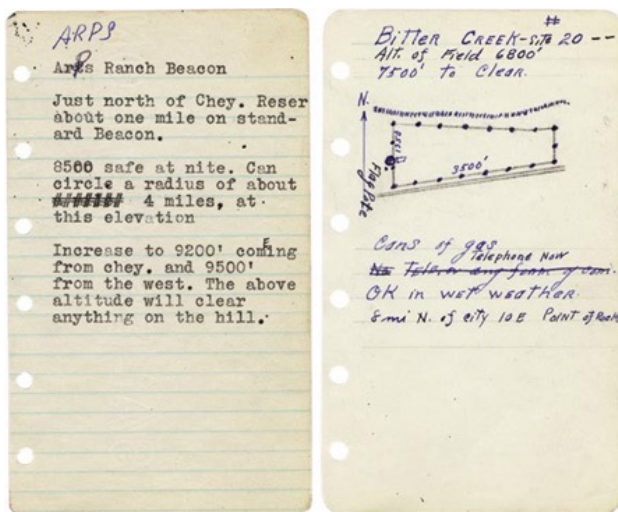 ARPS
Arps Ranch Beacon
Just north of Chey. Reser
about one mile on stand-
ard Beacon.
8500 safe at nite. Can
circle a radius of about
####### 4 miles, at
this elevation
Increase to 9200' comEng
from chey. and 9500'
from the west. The above
altitude will clear
anything on the hill.
Bitter Creek-Site #20 --
Alt. of Field 6800'
7500' to Clear.
N.
3500'
Flag Pole
Cans of gas
Telephone Now
No Tele. or any form of com.
OK in wet weather.
8 mi N. of city 10 E Point of Rock